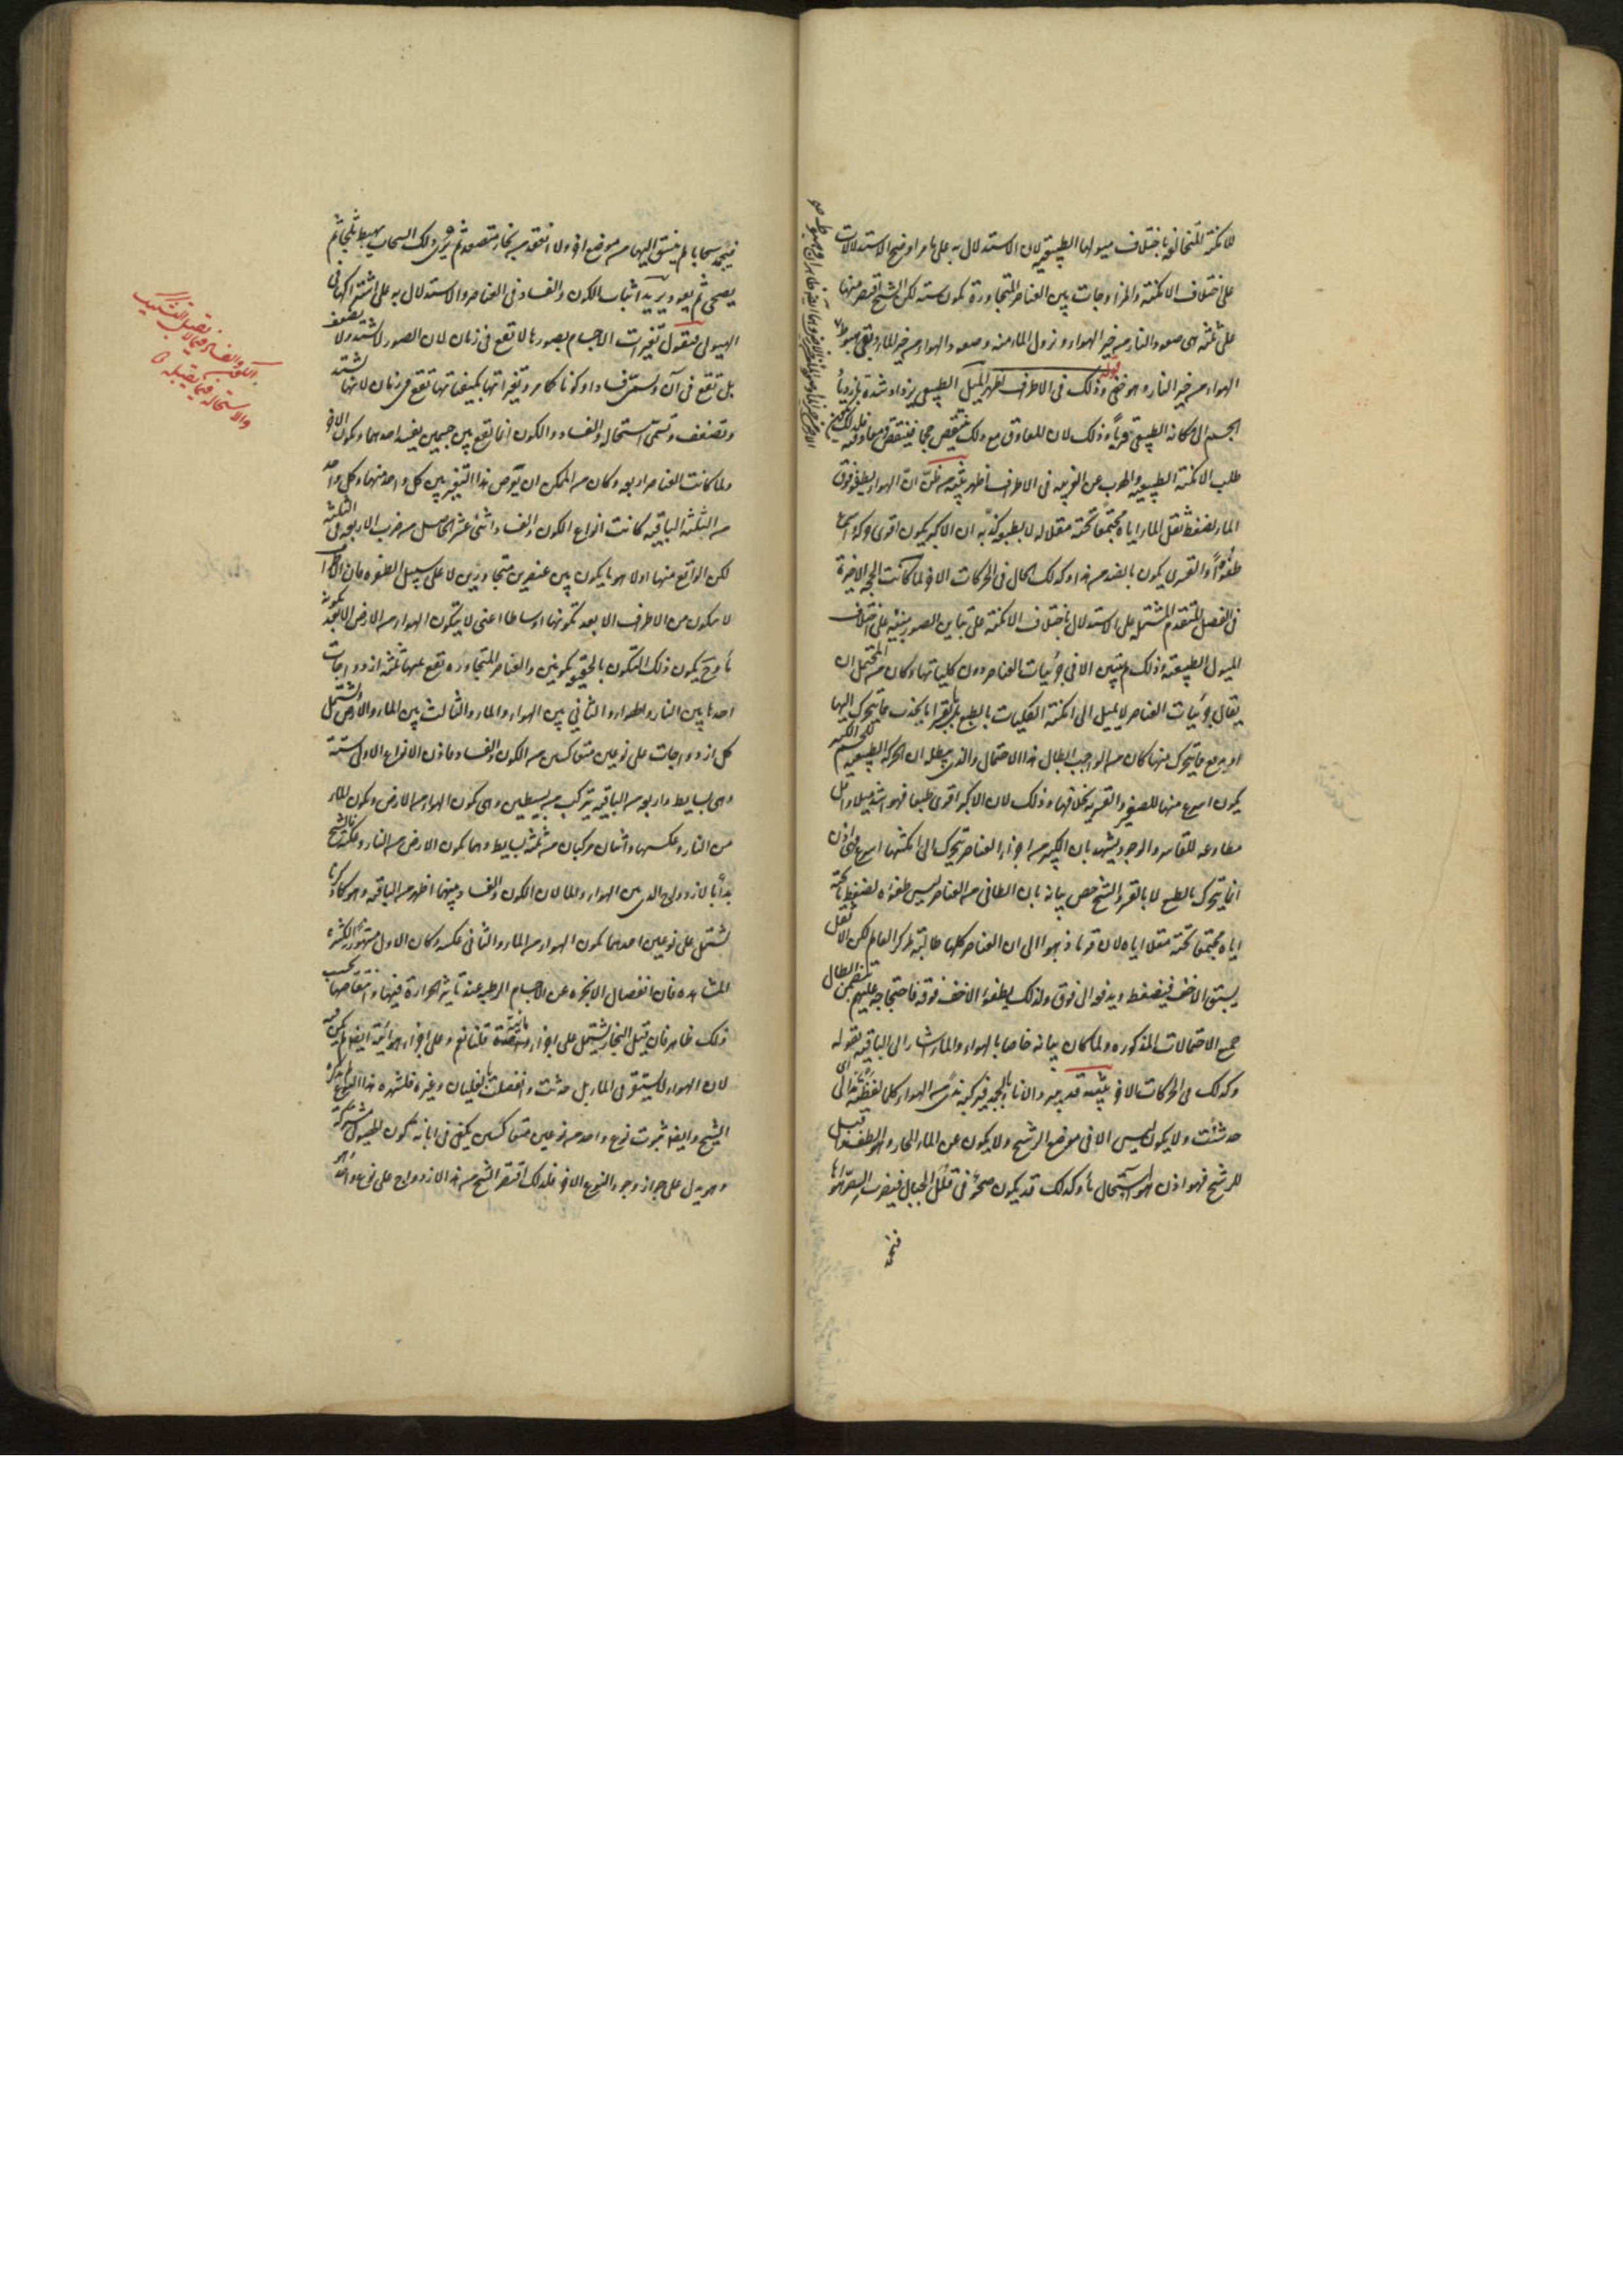 للامكنة المتخالفة باختلاف ميولها الطبيعية لان الاستدلال به على ما مر اوضح الاستدلالات
على اختلاف الامكنة والمزاوجات بين العناصر المتجاورة يكون ستة لكن الشيخ اقتصر منها
على ثلثة هى صعود النار من حيز الهواء ونزول الماء منه وصعود الهواء من حيز الماء وبقى هبوط
الهواء من حيز النار وهو خفى وذلك فى الاطراف اظهر الميل الطبيعى يزداد شدة بازدياد
الجسم الى مكانه الطبيعى قربا وذلك لان المعاوق مع ذلك ينتقص حجما فينتقص معاوقته
طلب الامكنة الطبيعية والهرب عن الغريبة فى الاطراف اظهر تنبيه من ظن ان الهواء يطفو فوق
الماء لضغط ثقل الماء اياه مجتمعا تحته مقلا له لا بطبعه كذبه ان الاكبر يكون اقوى حركة واسرع
طفوا والقسرى يكون بالضد من هذا وكذلك الحال فى الحركات الاخر لما كانت الحجة الاخيرة
فى الفصل المتقدم المشتمل على الاستدلال باختلاف الامكنة على تباين الصور مبنية على اختلاف
الميول الطبيعية وذلك لم يتبين الا فى جزئيات العناصر دون كلياتها وكان من المحتمل ان
يقال جزئيات العناصر لا تميل الى امكنة الكليات بالطبع بل بقسر اما يجذب ما يتحرك اليها
او يدفع ما يتحرك منها كان من الواجب ابطال هذا الاحتمال والذى يبطله ان الحركة الطبيعية للجسم الكبير
يكون اسرع منها للصغير والقسرية بخلافها وذلك لان الاكبر اقوى طبعا فهو اشد ميلا واقل
مطاوعة للقاسر والوجود يشهد بان الكبير من اجزاء العناصر يتحرك الى امكنتها اسرع فهى اذن
انما يتحرك بالطبع لا بالقسر والشيخ خص بيانه بان الطافى من العناصر ليس طفوه لضغط ما تحته
اياه مجتمعا تحته مقلا اياه لان قوما ذهبوا الى ان العناصر كلها طالبة لمركز العالم لكن الاثقل
يسبق الاخف فيضغطه ويدفعه الى فوق ولذلك يطفو الاخف فوقه فاحتجاجه عليهم تتضمن ابطال
جميع الاحتمالات المذكورة ولما كان بيانه خاصا بالهواء والماء اشار الى الباقية بقوله
وكذلك فى الحركات الاخر تنبيه قد يبرد الاناء بالجمد فيركبه ندى من الهواء كلما لقطته مد الى
حد شئت ولا يكون ليس الا فى موضع الرشح ولا يكون عن الماء الحار وهو الطف واقبل
للرشح فهو اذن هواء استحال ماء وكذلك قد يكون صحو فى قلل الجبال فيضرب الصر هواءها
فيجمد
فيجمد سحابا لم ينسق اليها من موضع اخر ولا انعقد من بخار متصعد ثم يرى ذلك السحاب يهبط ثلجا ثم
يصحى ثم يعود يريد اثبات الكون والفساد فى العناصر والاستدلال به على اشتراكها فى
الهيولى فنقول تغيرات الاجسام بصورها لا تقع فى زمان لان الصور لا تشتد ولا تضعف
بل تقع فى آن وتسمى فسادا وكونا كما مر وتغيراتها بكيفياتها تقع فى زمان لانها تشتد
وتضعف وتسمى استحالة والفساد والكون انما تقع بين جسمين يفسد احدهما ويكون الاخر
ولما كانت العناصر اربعة وكان من الممكن ان يعرض هذا التغير بين كل واحد منها وكل واحد
من الثلثة الباقية كانت انواع الكون والفساد اثنى عشر الحاصل من ضرب الاربعة فى الثلثة
لكن الواقع منها اولا هو ما يكون بين عنصرين متجاورين لا على سبيل الطفرة فان الاطراف
لا يتكون من الاطراف الا بعد تكونها اوساطا اعنى لا يتكون الهواء من الارض الا بعد تكونه
ماء وح يكون ذلك التكون بالحقيقة تكونين والعناصر المتجاورة تقع عنها ثلثة ازدواجات
احدها بين النار والهواء والثانى بين الهواء والماء والثالث بين الماء والارض ويشتمل
كل ازدواجات على نوعين متعاكسين من الكون والفساد فاذن الانواع الاولى ستة
وهى بسايط واربعة من الباقية يتركب من بسيطين وهى كون الهواء من الارض وكون الماء
من النار وعكسها واثنان مركبان من ثلثة بسايط وهما كون الارض من النار وعكسه فالشيخ
بدأ بالازدواج الذى بين الهواء والماء لان الكون والفساد بينهما اظهر من الباقية وهو كما ذكرنا
يشتمل على نوعين احدهما كون الهواء من الماء والثانى عكسه وكان الاول مشهورا لكثرة
المشاهدة فان انفصال الابخرة عن الاجسام الرطبة عند تاثير الحرارة فيها وانتقاصها بحسب
ذلك ظاهر فان قيل البخار يشتمل على اجزاء مائية متصعدة قلنا نعم وعلى اجزاء هوائية ايضا لم يكن فيه
لان الهواء لا يستقر فى الماء بل حدثت وانفصلت بالغليان وغيره فلشهرة هذا النوع لم يذكره
الشيخ وايضا ثبوت نوع واحد من نوعين متعاكسين يكفى فى ابانة كون الهيولى مشتركة
وهو يدل على جواز وجود النوع الاخر فلذلك اقتصر الشيخ من هذا الازدواج على نوع واحد
الكون والفساد فيما لا يقبل التشكيك
والاستحالة فيما يقبله